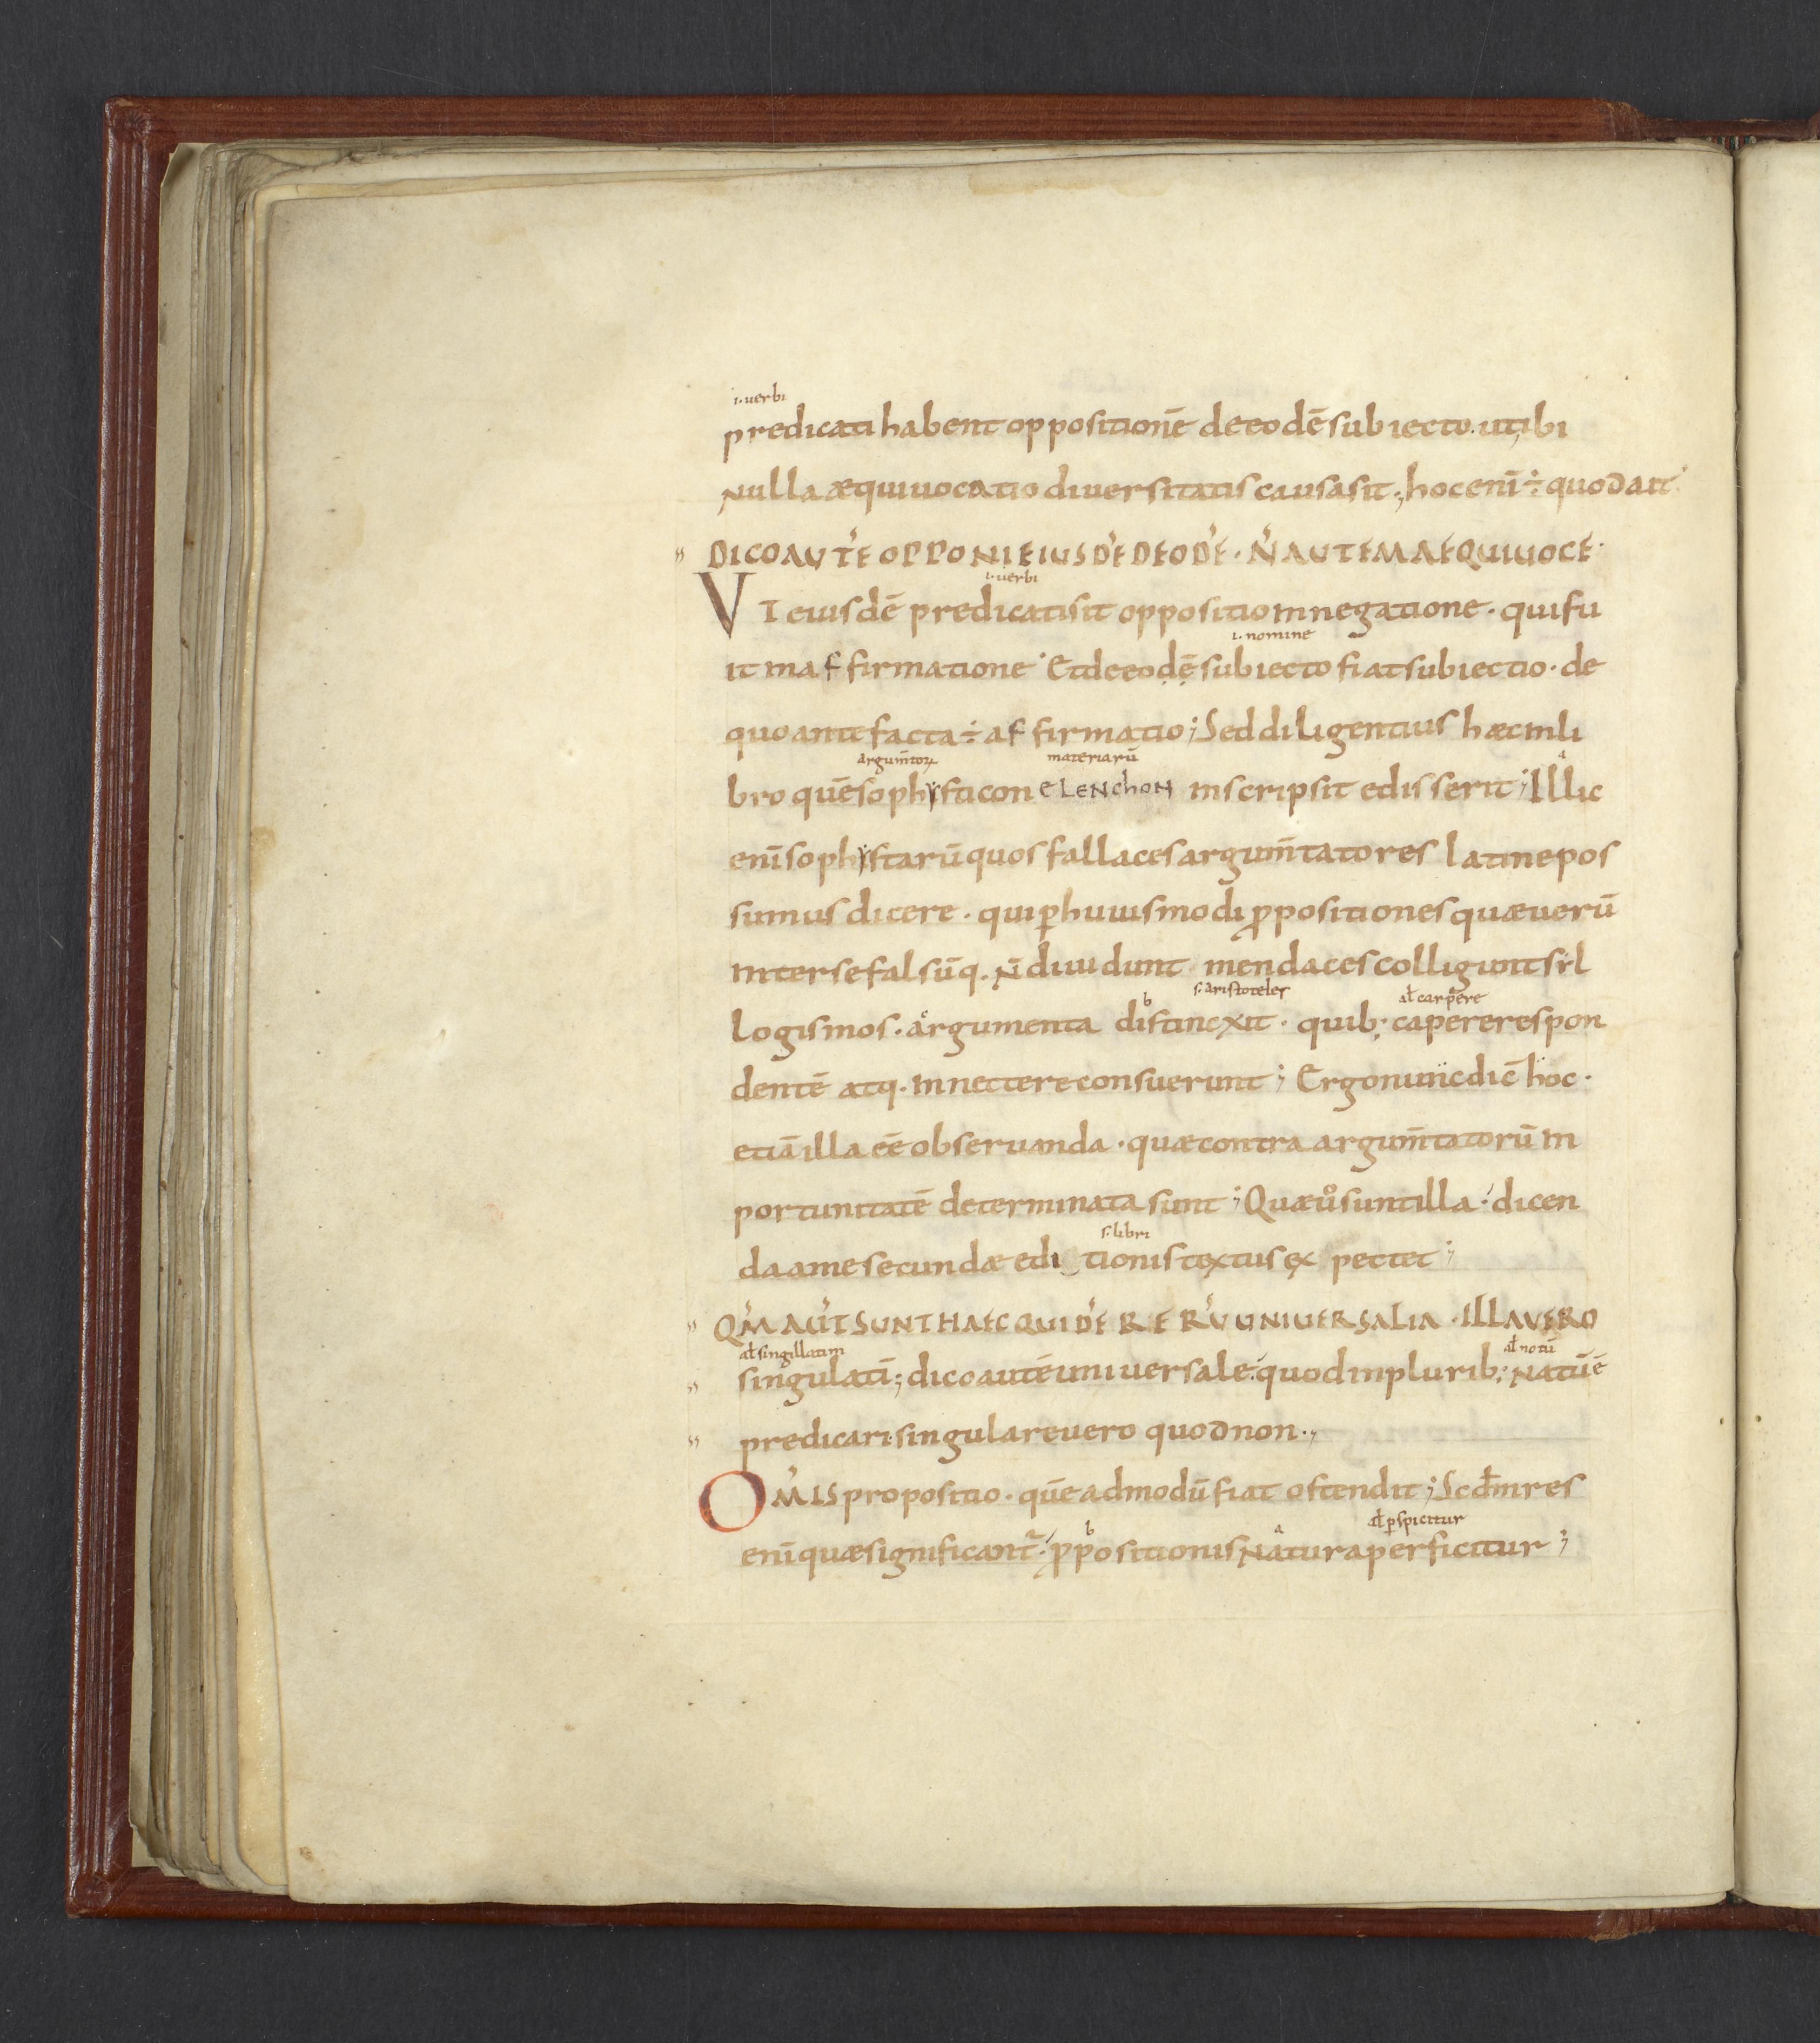 i. uerbi
predicati habent oppositionē de eodē subiecto. ut ibi
nulla æquiuocatio diuersitatis causa sit; hoc enī ÷ quod ait
DICO AUTE̅ OPPONI EIUSDE̅ DE EODE̅ · N̅ AUTEM AEQUIUOCE ·
i. uerbi
VT eiusdē predicati sit oppositio in negatione · qui fu
i. nomine
it in affirmatione · Et de eodē subiecto fiat subiectio · de
quo ante facta ÷ affirmatio; Sed diligentius hæc in li
argum̄toꝝ materiarū a
bro quē sophysticon eLENchON inscripsit edisserit; Illic
enī sophystarū quos fallaces argum̄tatores latine pos
sumus dicere · qui ꝑ huiusmodi ꝓpositiones quæ uerū
inter se falsūq. n̄ diuidunt mendaces colligunt sil
b s. aristoteles al̄ carpere
logismos · argumenta distincxit · quib; capere respon
dentē atq. innectere consuerunt; Ergo nunc dic̄ hoc ·
etiā illa ēē obseruanda · quæ contra argum̄tatorū in
portunitatē determinata sunt; Quæ ŭo sunt illa · dicen
s. libri
da a me secundæ editionis textus expectet;
QM̅ AUT̅ SUNT HAEC QUIDE̅ RERU̅ UNIUERSALIA · ILLA VERO
al̄ singillatim al̄ notū
singulatī; dico autē uniuersale · quod in plurib; natū ē
predicari · singulare uero quod non ·,
OM̅IS propositio · quē admodū fiat ostendit; Scd̄m res
b a al̄ ꝑspicitur
enī quæ significant̄ · ꝓpositionis natura perficitur;